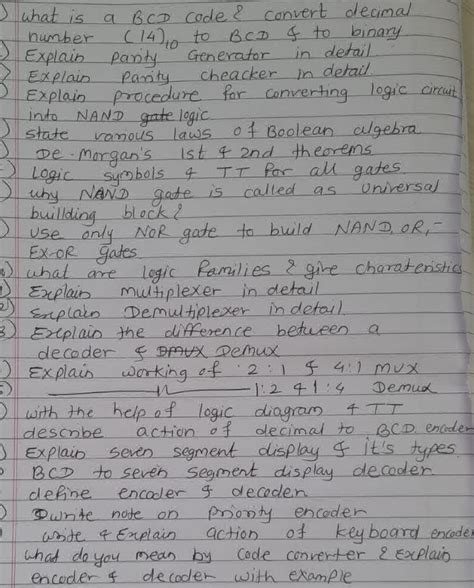 what is a BCD code & convert decimal
number (14)10 to BCD & to binary
) Explain parity Generator in detail
) Explain Parity cheacker in detail
) Explain procedure for converting logic circuit
into NAND gate logic
) state various laws of Boolean algebra
) De-Morgan's 1st & 2nd theorems
) Logic symbols & TT for all gates
) why NAND gate is called as Universal
buillding block?
) use only NOR gate to build NAND, OR,-
EX-OR gates
) what are logic families & give charateristic
) Explain multiplexer in detail
2) Explain Demultiplexer in detail
3) Explain the difference between a
decoder & DMUX Demux
) Explain working of 2:1 & 4:1 MUX
) —— 11 —— 1:2 & 1:4 Demux
) with the help of logic diagram & TT
describe action of decimal to BCD encoder
) Explain seven segment display & it's types
BCD to seven segment display decoder
define encoder & decoder
write note on priority encoder
write & Explain action of keyboard encoder
what do you mean by code converter & Explain
encoder & decoder with example